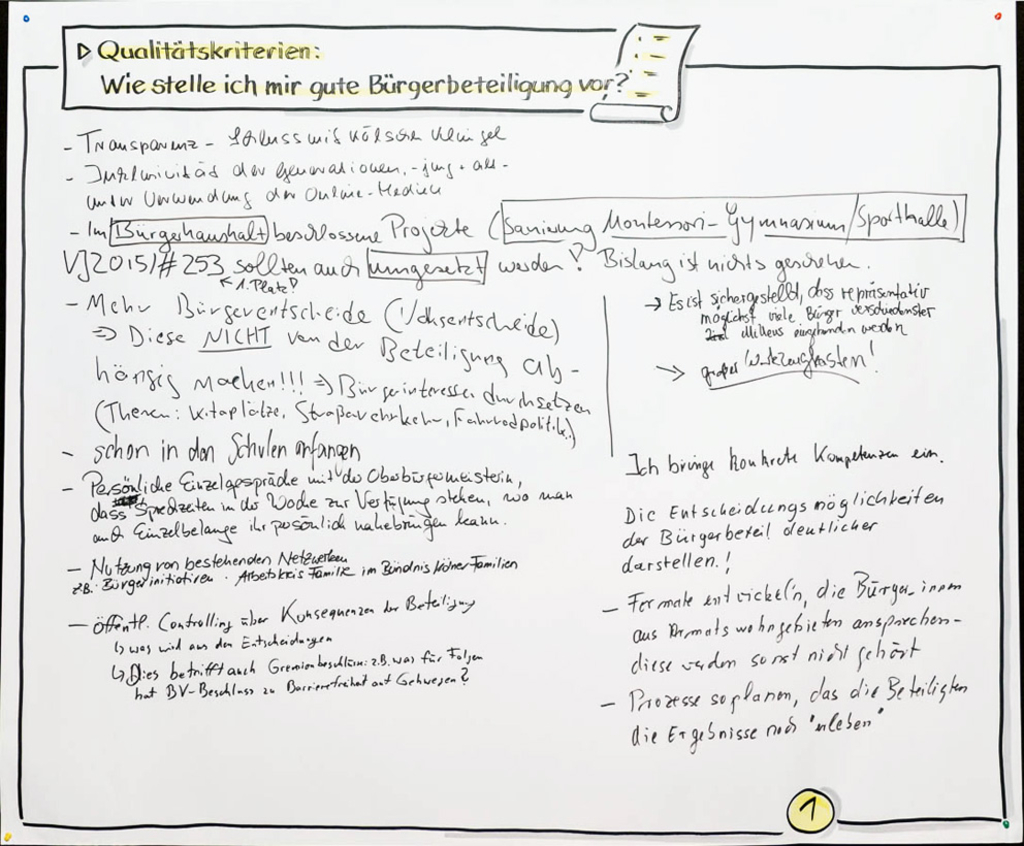 Qualitätskriterien:
Wie stelle ich mir gute Bürgerbeteiligung vor?
- Transparenz - Schluss mit kölschem Klüngel
- der Generationen, - jung + alt -
unter Verwendung der Online-Medien
- Im Bürgerhaushalt beschlossene Projekte (Sanierung Montessori-Gymnasium/Sporthalle)
VJ2015/#253 sollten auch umgesetzt werden! Bislang ist nichts geschehen.
1. Platz!
- Mehr Bürgerentscheide (Volksentscheide)
⇒ Diese NICHT von der Beteiligung ab-
hängig machen!!! ⇒ Bürgerinteressen durchsetzen
(Themen: Kitaplätze, Straßenverkehr, Fahrradpolitik)
- schon in den Schulen anfangen
- Persönliche Einzelgespräche mit der Oberbürgermeisterin,
dass Sprechzeiten in der Woche zur Verfügung stehen, wo man
auch Einzelbelange ihr persönlich nahebringen kann.
- Nutzung von bestehenden Netzwerken
z.B. Bürgerinitiativen · Arbeitskreis Familie im Bündnis Kölner Familien
- öffentl. Controlling über Konsequenzen der Beteiligung
↳ was wird aus den Entscheidungen
↳ Dies betrifft auch Gremienbeschlüsse: z.B. was für Folgen
hat BV-Beschluss zu Barrierefreiheit auf Gehwegen?
→ Es ist sichergestellt, dass repräsentativ
möglichst viele Bürger verschiedenster
Milieus eingebunden werden
→ großer Werkzeugkasten!
Ich bringe konkrete Kompetenzen ein.
Die Entscheidungsmöglichkeiten
der Bürgerbeteil deutlicher
darstellen!
- Formate entwickeln, die Bürger_innen
aus Armutswohngebieten ansprechen -
diese werden sonst nicht gehört
- Prozesse so planen, das die Beteiligten
die Ergebnisse noch "erleben"
1